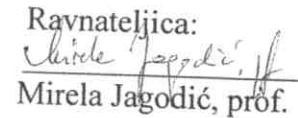 Ravnateljica:
Mirela Jagodić, prof.
Mirela Jagodić, prof.